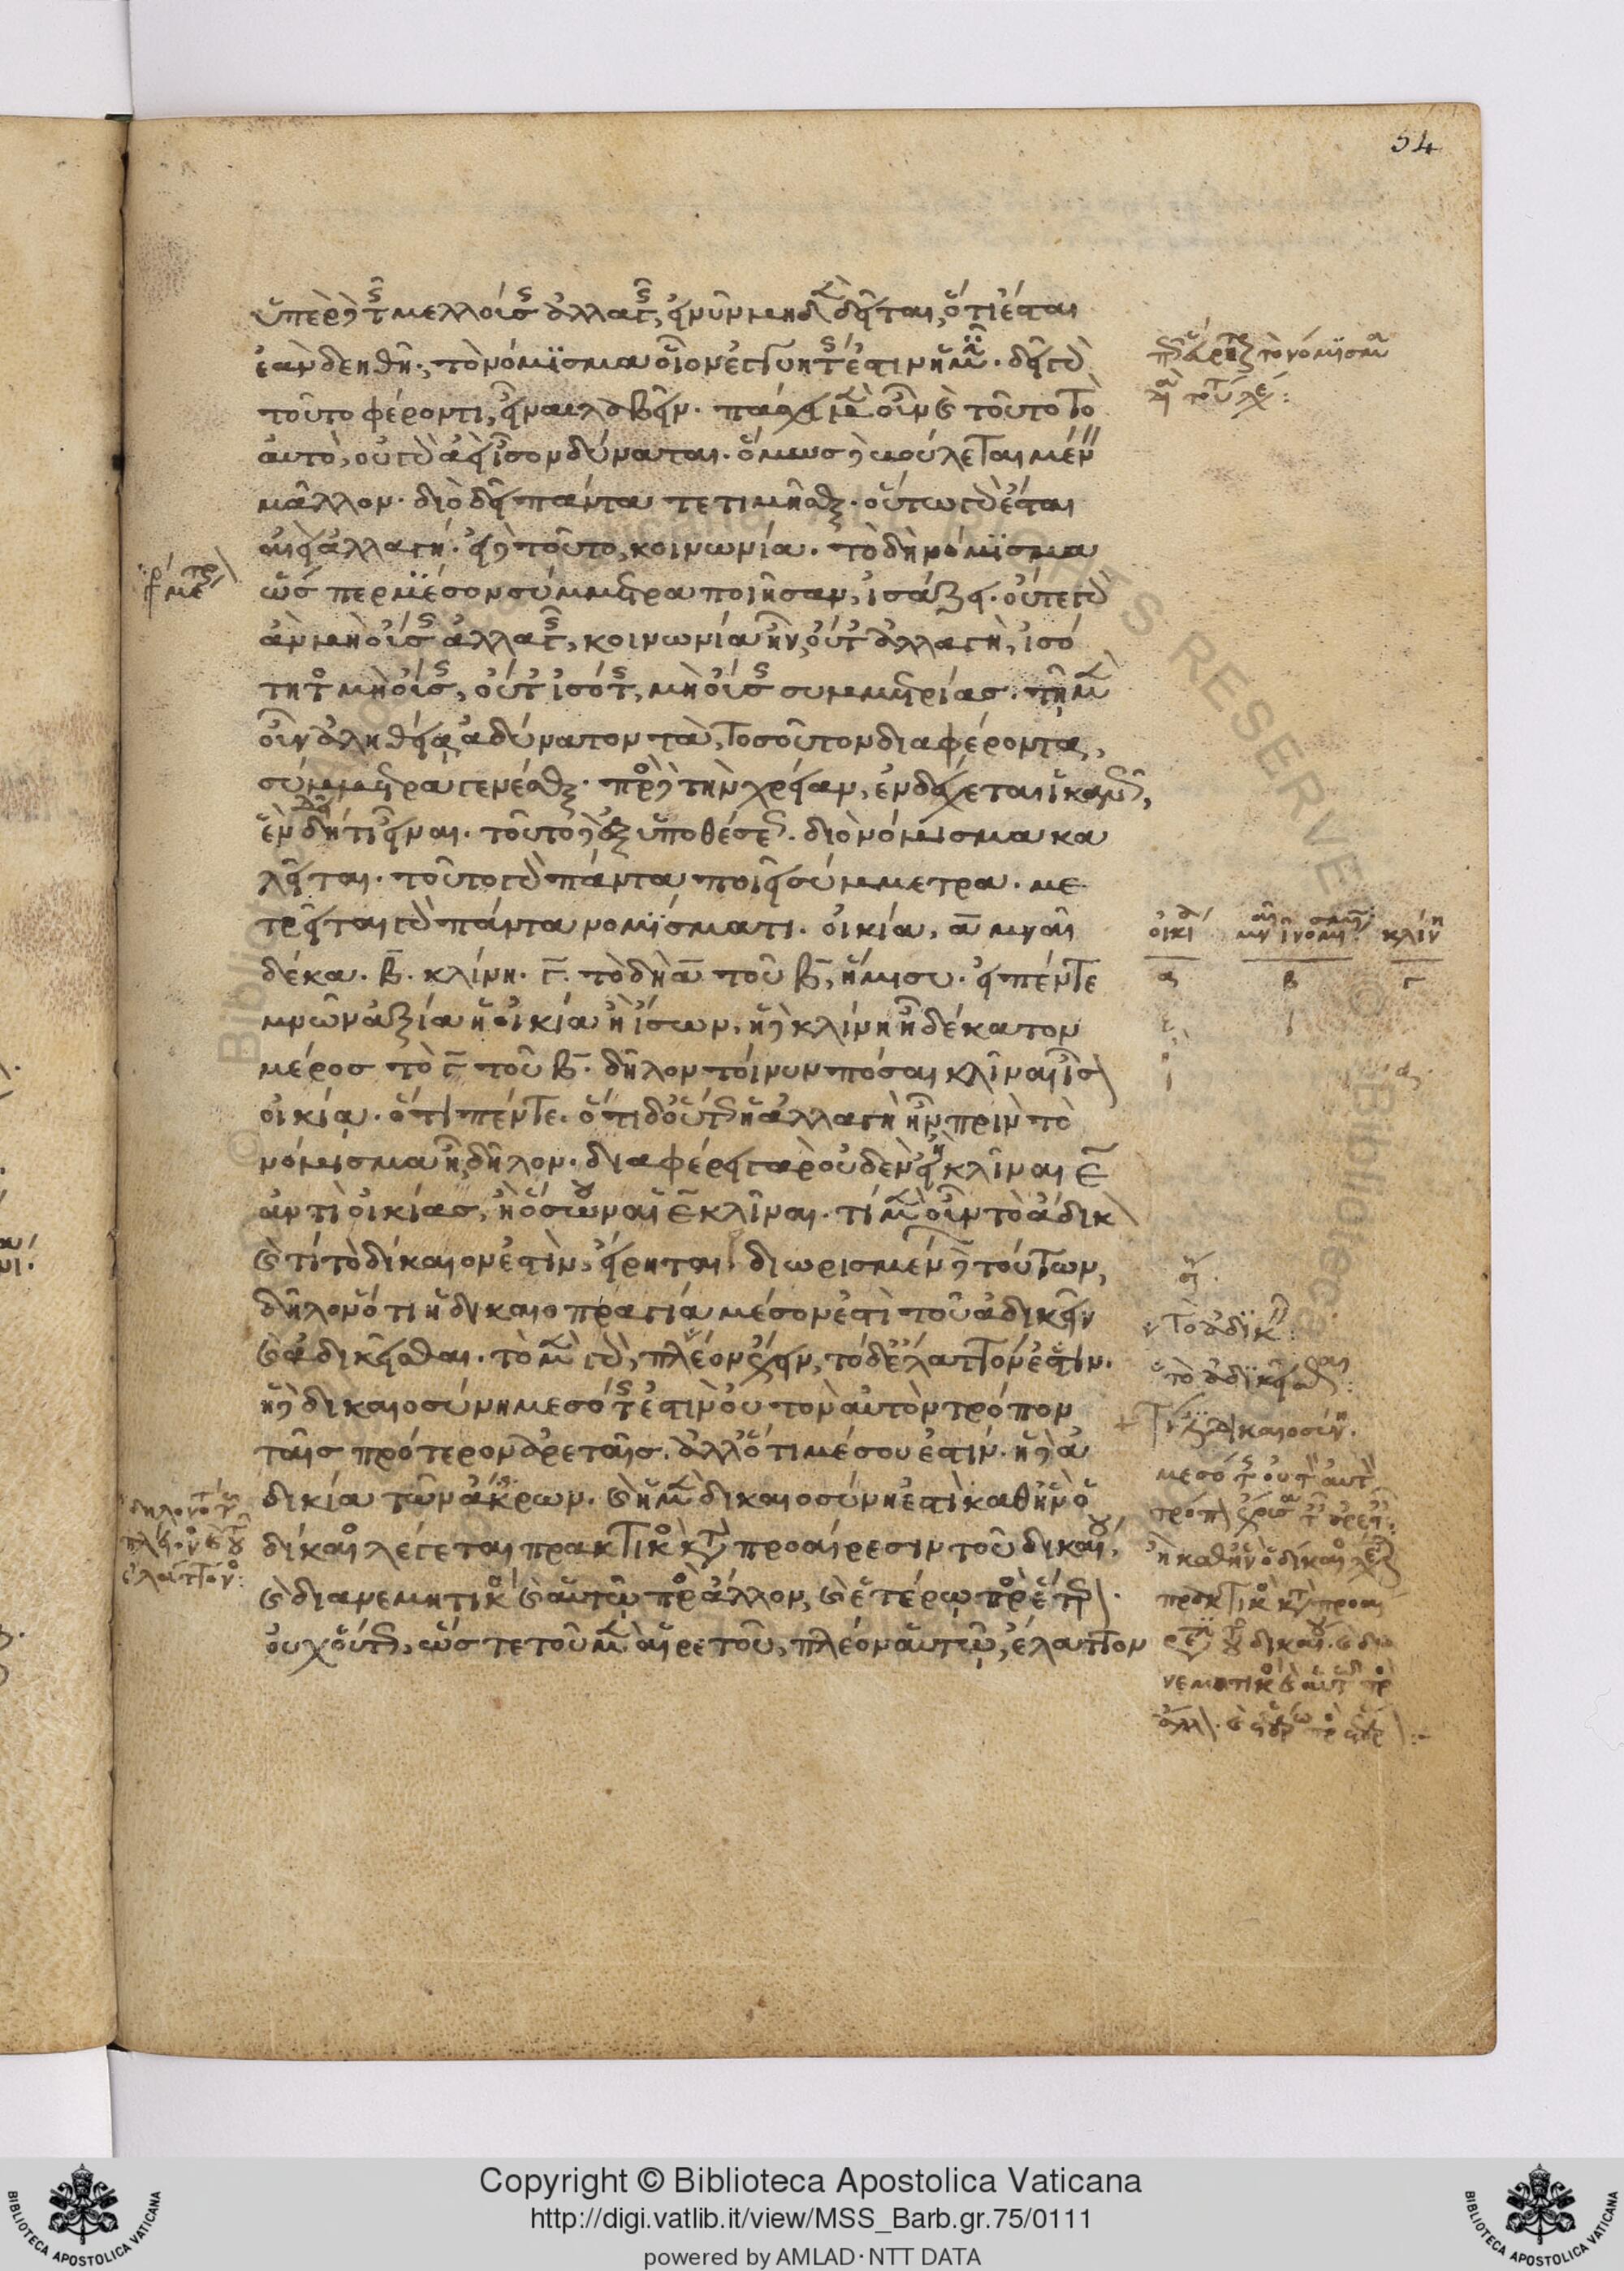 ὑπὲρ δὲ τῆς μελλούσης ἀλλαγῆς, εἰ νῦν μηδὲν δεῖται, ὅτι ἔσται
ἐὰν δεηθῆ, τὸ νόμϊσμα οἷον ἐγγυητής ἐστιν ἡμῖν. δεῖ γὰρ
τοῦτο φέροντι, εἶναι λαβεῖν. πάσχει μὲν οὖν καὶ τοῦτο τὸ
αὐτὸ, οὐ γὰρ ἀεὶ ἴσον δύναται. ὅμως δὲ βούλεται μένειν
μᾶλλον. διὸ δεῖ πάντα τετιμῆσθαι. οὕτω γὰρ ἔσται
ἀεὶ ἀλλαγή. εἰ δὲ τοῦτο, κοινωνία. τὸ δὴ νόμϊσμα
ὥσπερ μέσον σύμμετρα ποιῆσαν, ἰσάζει. οὔτε γὰρ
ἂν μὴ οὔσης ἀλλαγῆς, κοινωνία ἦν, οὔτ' ἀλλαγὴ, ἰσό
τητος μὴ οὔσης, οὔτ' ἰσότης, μὴ οὔσης συμμετρίας. τῇ μὲν
οὖν ἀληθείᾳ ἀδύνατον τὰ τοσοῦτον διαφέροντα,
σύμμετρα γενέσθαι. πρὸς δὲ τὴν χρείαν, ἐνδέχεται ἱκανῶς,
ἓν δή τι δεῖ εἶναι. τοῦτο δὲ ἐξ ὑποθέσεως. διὸ νόμισμα κα
λεῖται. τοῦτο γὰρ πάντα ποιεῖ σύμμετρα. με
τρεῖται γὰρ πάντα νομϊσματι. οἰκία, α μναῖ
δέκα. β. κλίνη. γ. τὸ δὴ α τοῦ β, ἥμισυ. εἰ πέντε
μνῶν ἀξία ἡ οἰκία ἢ ἴσον, ἡ δὲ κλίνη ἢ δέκατον
μέρος τὸ γ τοῦ β. δῆλον τοίνυν πόσαι κλῖναι ἴσον
οἰκία. ὅτι πέντε. ὅτι δ' οὕτως ἡ ἀλλαγὴ ἦν πρὶν τὸ
νόμισμα ἦ, δῆλον. διαφέρει γὰρ οὐδὲν ἢ κλῖναι ε
ἀντὶ οἰκίας, ἢ ὅσου αἱ ε κλῖναι. τί μὲν οὖν τὸ ἄδικον
καὶ τί τὸ δίκαιον ἐστὶν, εἴρηται. διωρισμένων δὲ τούτων,
δῆλον ὅτι ἡ δικαιοπραγία μέσον ἐστὶ τοῦ ἀδικεῖν
καὶ ἀδικεῖσθαι. τὸ μὲν γὰρ, πλέον ἔχειν, τὸ δὲ ἔλαττον ἐστιν.
ἡ δὲ δικαιοσύνη μεσότης ἐστὶν οὐ τὸν αὐτὸν τρόπον
ταῖς πρότερον ἀρεταῖς. ἀλλ' ὅτι μέσου ἐστίν. ἡ δὲ ἀ
δικία τῶν ἄκρων. καὶ ἡ μὲν δικαιοσύνη ἐστὶ καθ' ἣν ὁ
δίκαιος λέγεται πρακτικὸς κατὰ προαίρεσιν τοῦ δικαίου,
καὶ διανεμητικὸς καὶ αὑτῷ πρὸς ἄλλον, καὶ ἑτέρῳ πρὸς ἕτερον.
οὐχ οὕτως, ὥστε τοῦ μὲν αἱρετοῦ, πλέον αὑτῷ, ἔλαττον
54
τὸ νόμισμα
οἰκία
κλίνη
α
β
γ
τὸ ἀδικεῖν
τὸ ἀδικεῖσθαι
δικαιοσύνη
Copyright © Biblioteca Apostolica Vaticana
http://digi.vatlib.it/view/MSS_Barb.gr.75/0111
powered by AMLAD·NTT DATA
BIBLIOTECA APOSTOLICA VATICANA
BIBLIOTECA APOSTOLICA VATICANA